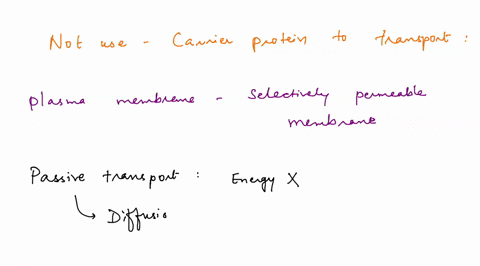 Not use - Carrier protein to transport :
Plasma membrane - Selectively permeable
membrane
Passive transport : Energy X
Diffusio